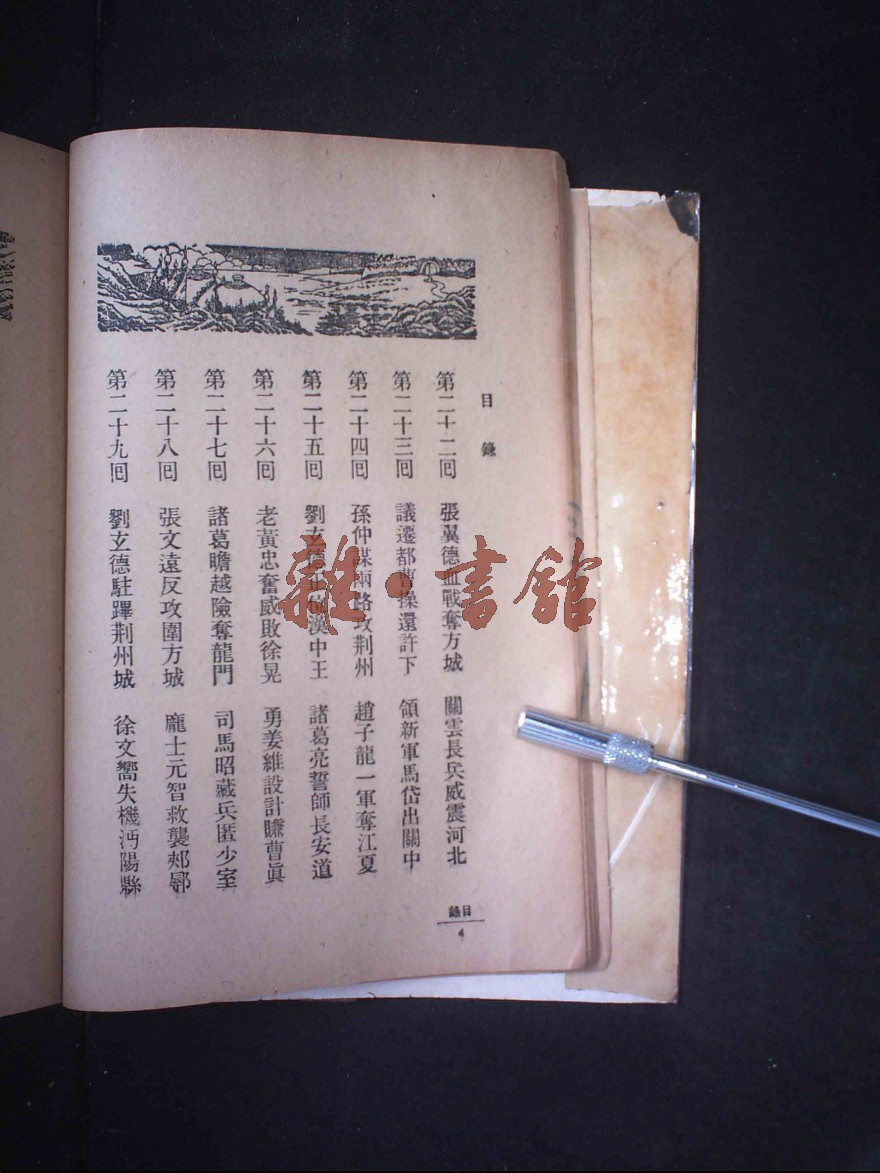 目錄
第二十二回 張翼德血戰奪方城 關雲長兵威震河北
第二十三回 議遷都曹操還許下 領新軍馬岱出關中
第二十四回 孫仲謀兩路攻荆州 趙子龍一軍奪江夏
第二十五回 劉玄德正位漢中王 諸葛亮誓師長安道
第二十六回 老黃忠奮威敗徐晃 勇姜維設計賺曹眞
第二十七回 諸葛瞻越險奪龍門 司馬昭藏兵匿少室
第二十八回 張文遠反攻圍方城 龐士元智救襲郟鄏
第二十九回 劉玄德駐蹕荆州城 徐文嚮失機沔陽縣
目錄
4
雜·書館